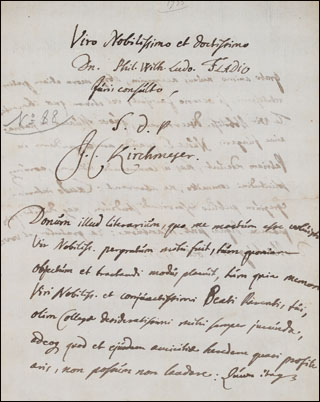 Viro Nobilissimo et doctissimo
Dn. Phil. Wilh. Ludo. FLADIO
Juris consulto,
N.º 22
S. d. p
J. C. Kirchmayer.
Donum illud literarium, quo me mactum esse voluisti
Vir Nobiliss. pergratum mihi fuit, tum quoniam
objectum et tractandi modus placuit, tum quia memoria
Viri Nobiliss. et conjunctissimi Beati Parentis, tui,
olim Collegæ desideratissimi mihi semper jucunda,
adeoq quod et ejusdem amicitiæ heredem quasi profite
aris, non possum non laudare: